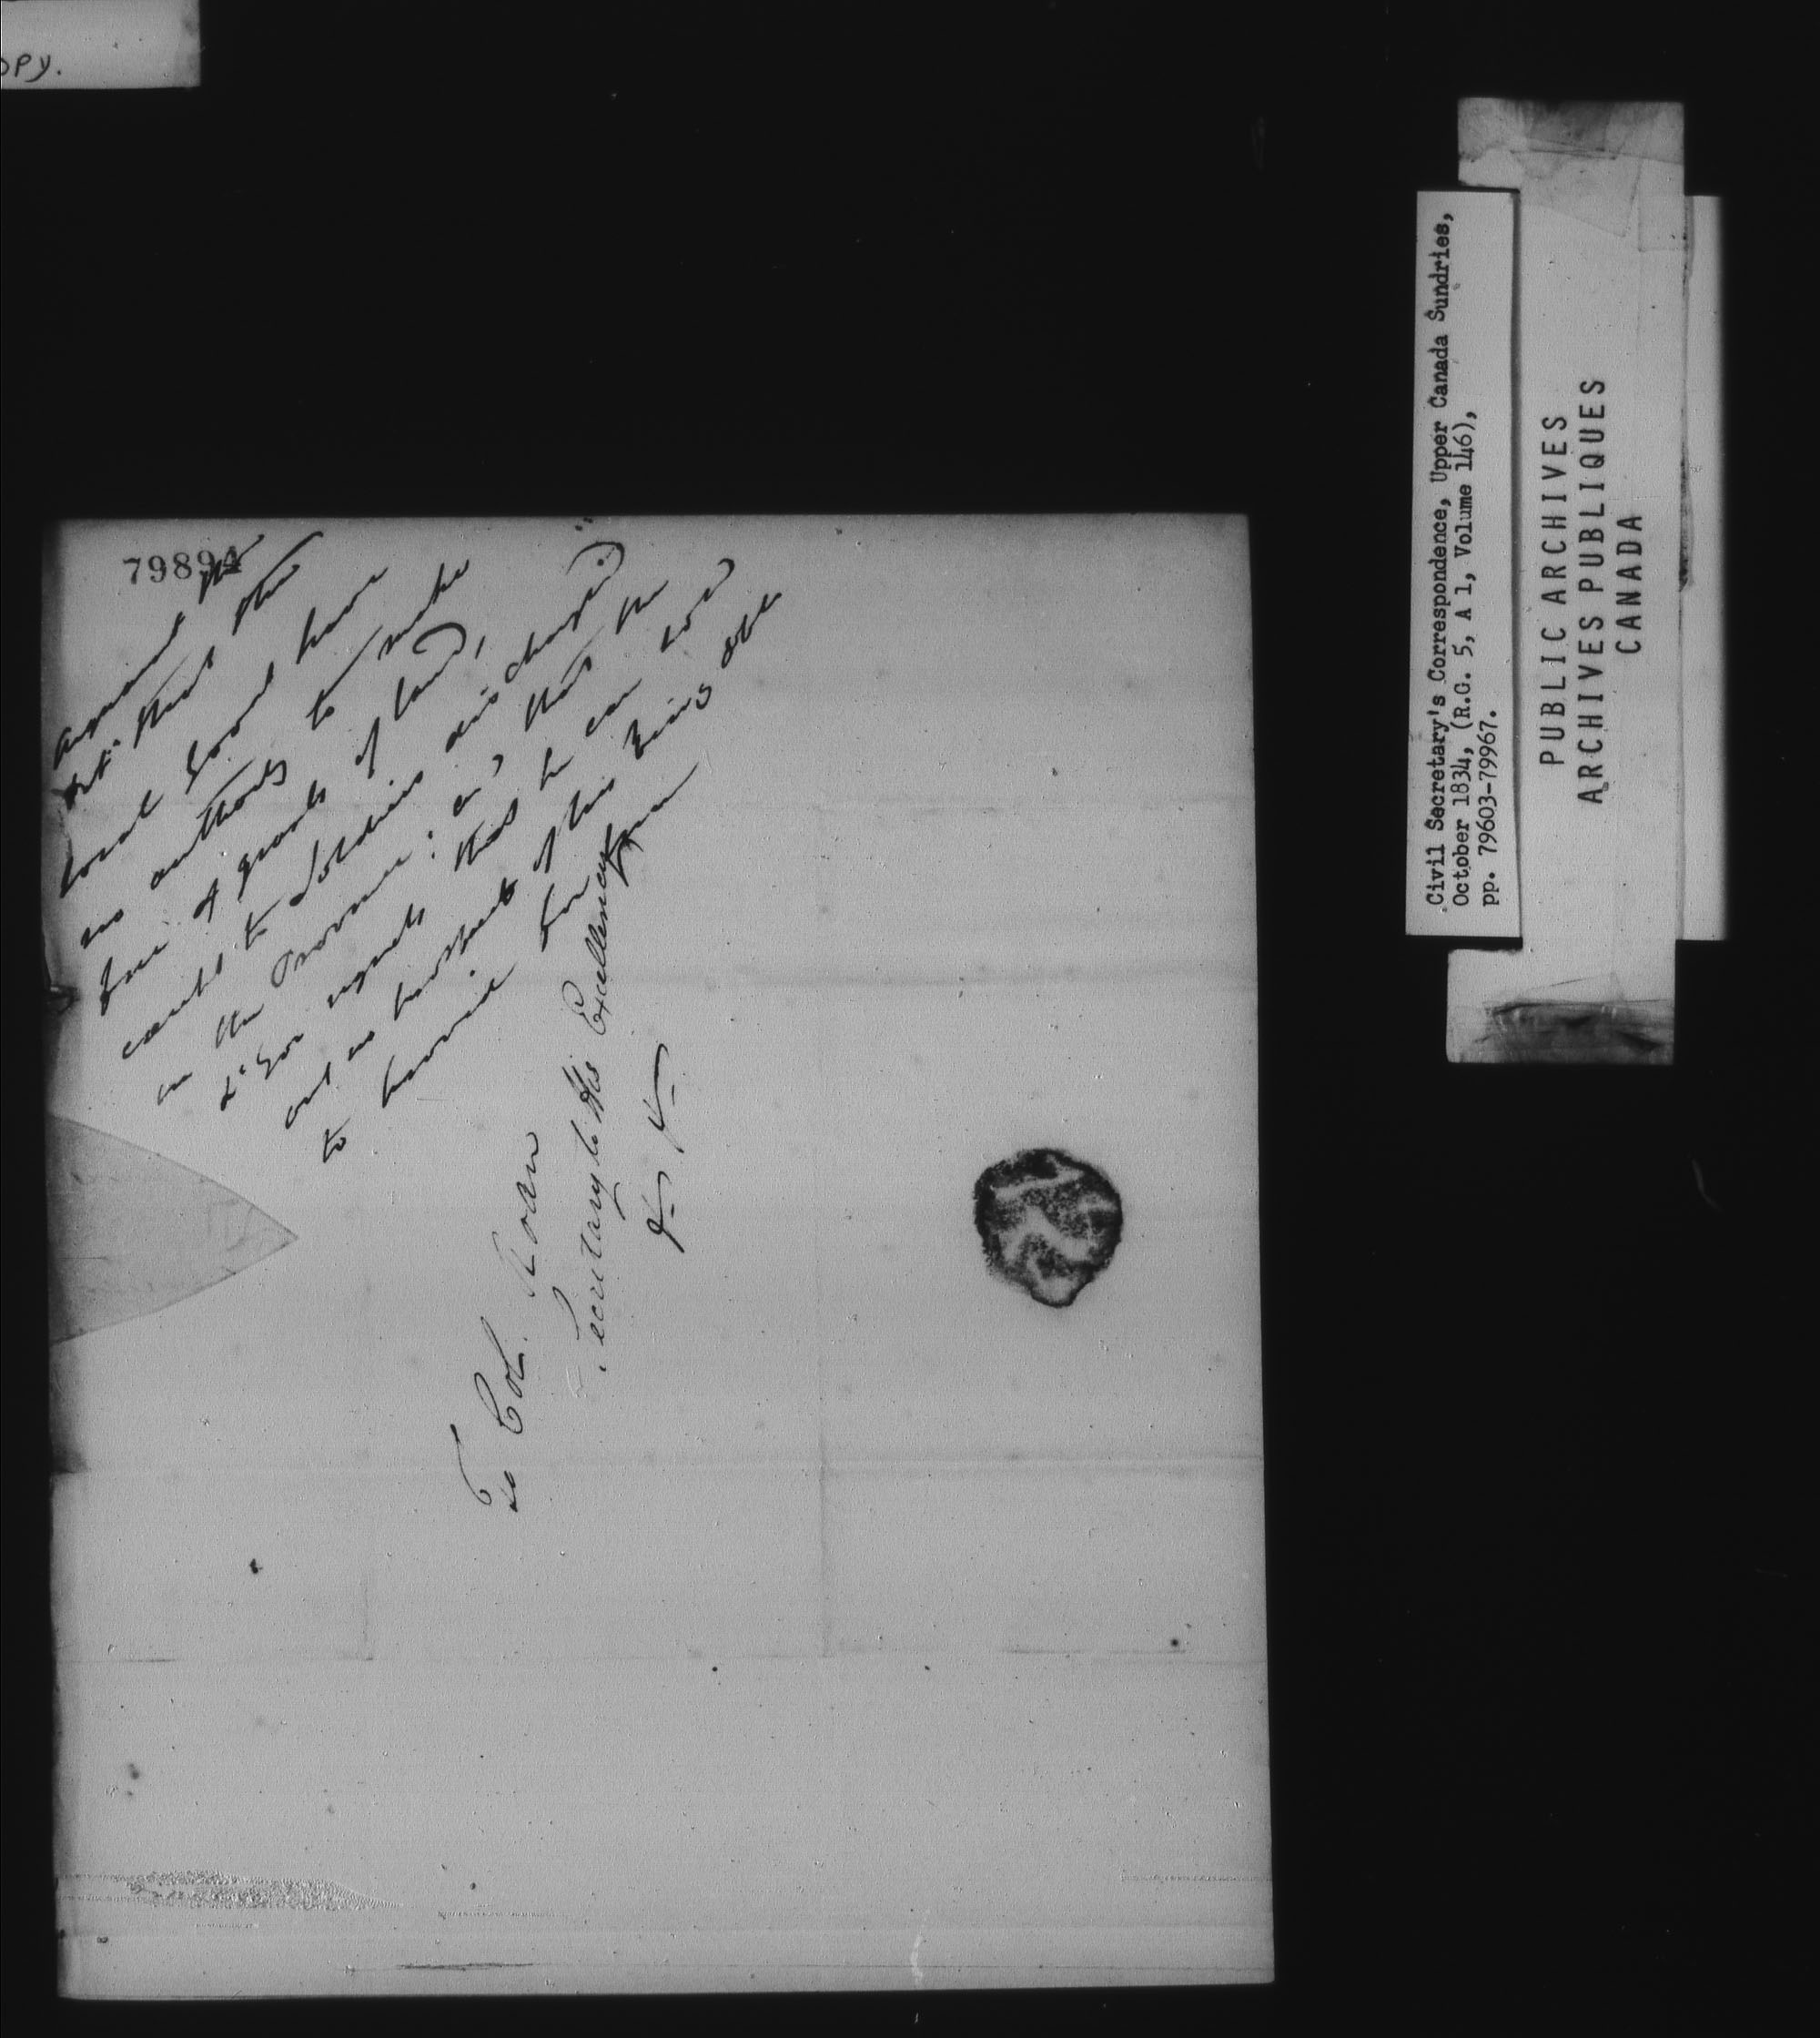 opy.
79894
Acquaint the
that the
local Govt have
no authority to make
free grants of land,
except to Soldiers discharged
in the Province: and that the
Lt Gov regrets that he can hold
out no prospect of his being able
to
To Col. Rowan
Secretary to His Excellency
&c &c
Civil Secretary's Correspondence, Upper Canada Sundries,
October 1834, (R.G. 5, A 1, Volume 146),
pp. 79603-79967.
PUBLIC ARCHIVES
ARCHIVES PUBLIQUES
CANADA